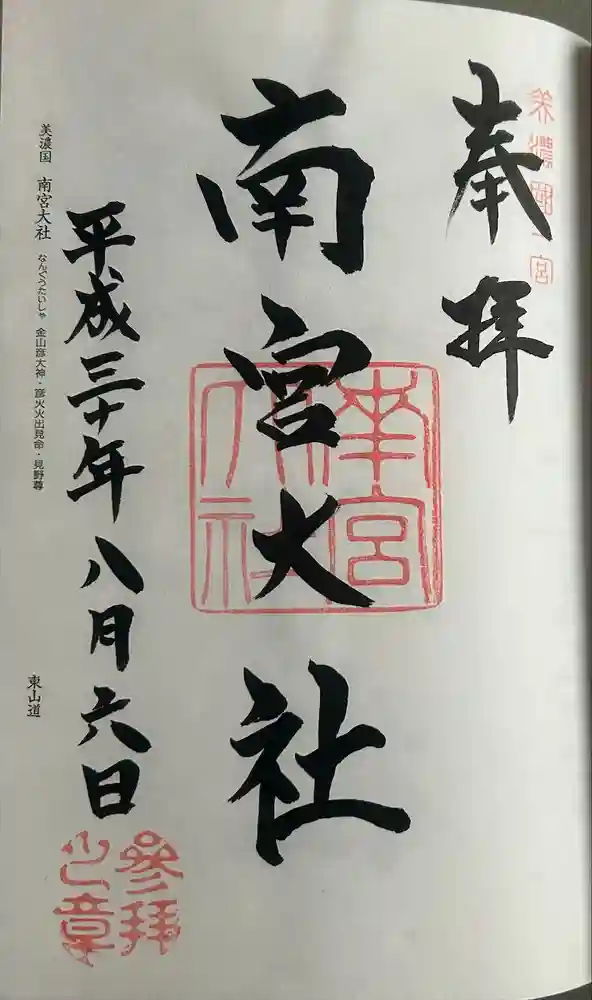 奉拝
美濃國一宮
南宮大社
南宮大社
平成三十年八月六日
参拝之章
美濃国 南宮大社 なんぐうたいしゃ 金山彦大神・彦火火出見命・見野尊
東山道